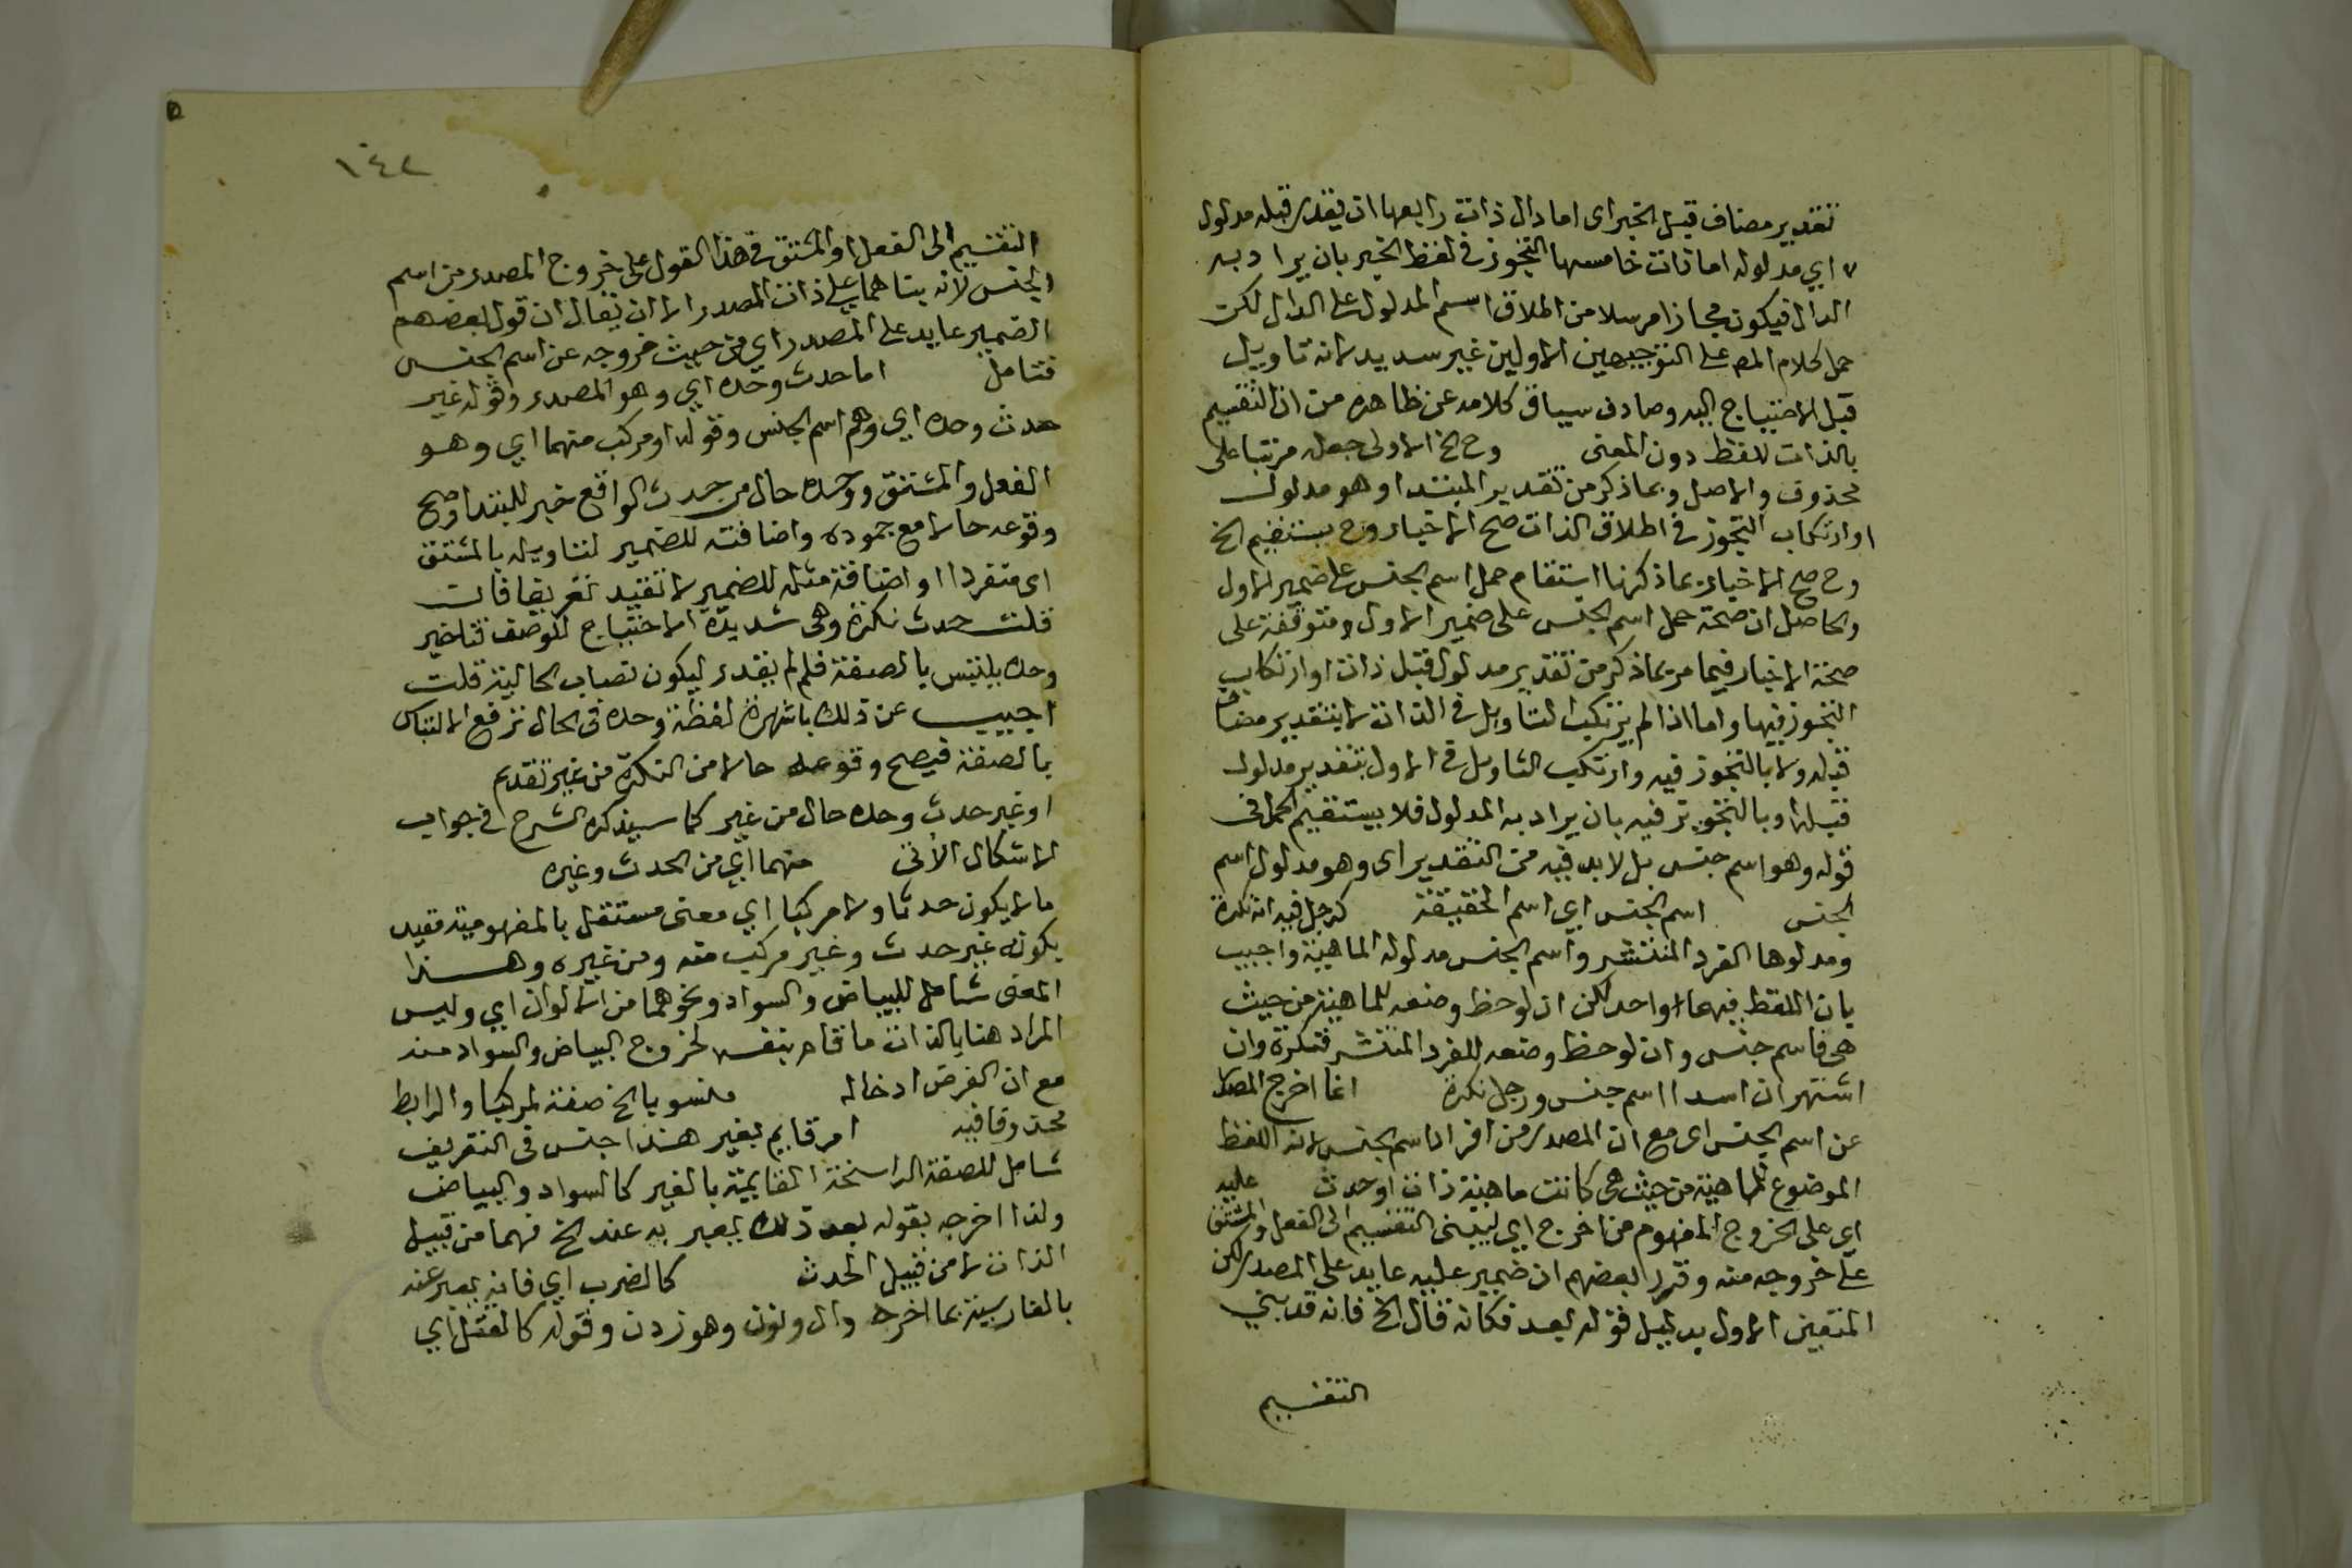 تقدير مضاف قبل الخبر اى اما دال ذات رابعها ان يقدر قبله مدلول
اي مدلوله اما ذات خامسها التجوز فى لفظ الخبر بان يراد به
الدال فيكون مجازا مرسلا من اطلاق اسم المدلول على الدال لكن
حمل كلام المص على التوجيهين الاولين غير سديد لانه تاويل
قبل الاحتياج اليه وصارف سياق كلامه عن ظاهره من ان التقسيم
بالذات للفظ دون المعنى وح الخ الاولى جعله مرتبا على
محذوف والاصل وبما ذكر من تقدير المبتدا وهو مدلول
او ارتكاب التجوز فى اطلاق الذات صح الاخبار وح يستقيم الخ
وح صح الاخبار بما ذكرنا استقام حمل اسم الجنس على ضمير الاول
والحاصل ان صحة حمل اسم الجنس على ضمير الاول متوقفة على
صحة الاخبار فيما مر بما ذكر من تقدير مدلول قبل ذات او ارتكاب
التجوز فيها واما اذا لم يرتكب التاويل فى الذات لا بتقدير مضاف
قبله ولا بالتجوز فيه وارتكب التاويل فى الاول بتقدير مدلول
قبله او بالتجوز فيه بان يراد به المدلول فلا يستقيم الحمل فى
قوله وهو اسم جنس بل لا بد فيه من التقدير اى وهو مدلول اسم
الجنس اسم الجنس اي اسم الحقيقة كرجل فيه انه نكرة
ومدلولها الفرد المنتشر واسم الجنس مدلوله الماهية واجيب
بان اللفظ فيهما واحد لكن ان لوحظ وضعه للماهية من حيث
هى فاسم جنس وان لوحظ وضعه للفرد المنتشر فنكرة وان
اشتهر ان اسدا اسم جنس ورجل نكرة انما اخرج المصدر
عن اسم الجنس اى مع ان المصدر من افراد اسم الجنس لانه اللفظ
الموضوع للماهية من حيث هى كانت ماهية ذات او حدث عليه
اي على الخروج المفهوم من اخرج اي ليبنى التقسيم الى الفعل والمشتق
على خروجه منه وقرر بعضهم ان ضمير عليه عايد على المصدر لكن
المتعين الاول بدليل قوله بعد فكانه قال الخ فانه قد بنى
التقسيم
١٤٢
التقسيم الى الفعل والمشتق فى هذا القول على خروج المصدر من اسم
الجنس لانه بناهما على ذات المصدر الا ان يقال ان قول بعضهم
الضمير عايد على المصدر اي من حيث خروجه عن اسم الجنس
فتامل اما حدث وحده اي وهو المصدر وقوله غير
حدث وحده اي وهو اسم الجنس وقوله او مركب منهما اي وهو
الفعل والمشتق ووحده حال من حدث الواقع خبر للمبتدا وصح
وقوعه حالا مع جموده واضافته للضمير لتاويله بالمشتق
اى منفردا او اضافة مثله للضمير لا تفيد تعريفا فان
قلت حدث نكرة وهى شديدة الاحتياج للوصف فتاخير
وحده يلتبس بالصفة فلم لم يقدم ليكون نصا بالحالية قلت
اجيب عن ذلك باشهرة لفظة وحده فى الحال ترفع الالتباس
بالصفة فيصح وقوعه حالا من النكرة من غير تقديم
او غير حدث وحده حال من غير كما سيذكره الشرح فى جواب
الاشكال الآتى منهما اي من الحدث وغيره
ما لا يكون حدثا ولا مركبا اي معنى مستقل بالمفهومية مقيد
بكونه غير حدث وغير مركب منه ومن غيره وهذا
المعنى شامل للبياض والسواد ونحوهما من الالوان اي وليس
المراد هنا بالذات ما قام بنفسه لخروج البياض والسواد منه
مع ان الغرض ادخاله منسوبا الخ صفة لمركبا والرابط
محذوف فيه امر قايم بغير هذا جنس فى التعريف
شامل للصفة الراسخة القايمة بالغير كالسواد والبياض
ولذا اخرجه بقوله بعد ذلك يعبر به عند الخ فهما من قبيل
الذات لا من قبيل الحدث كالضرب اي فانه يعبر عنه
بالفارسية بما اخره دال ونون وهو زدن وقوله كالقتل اي